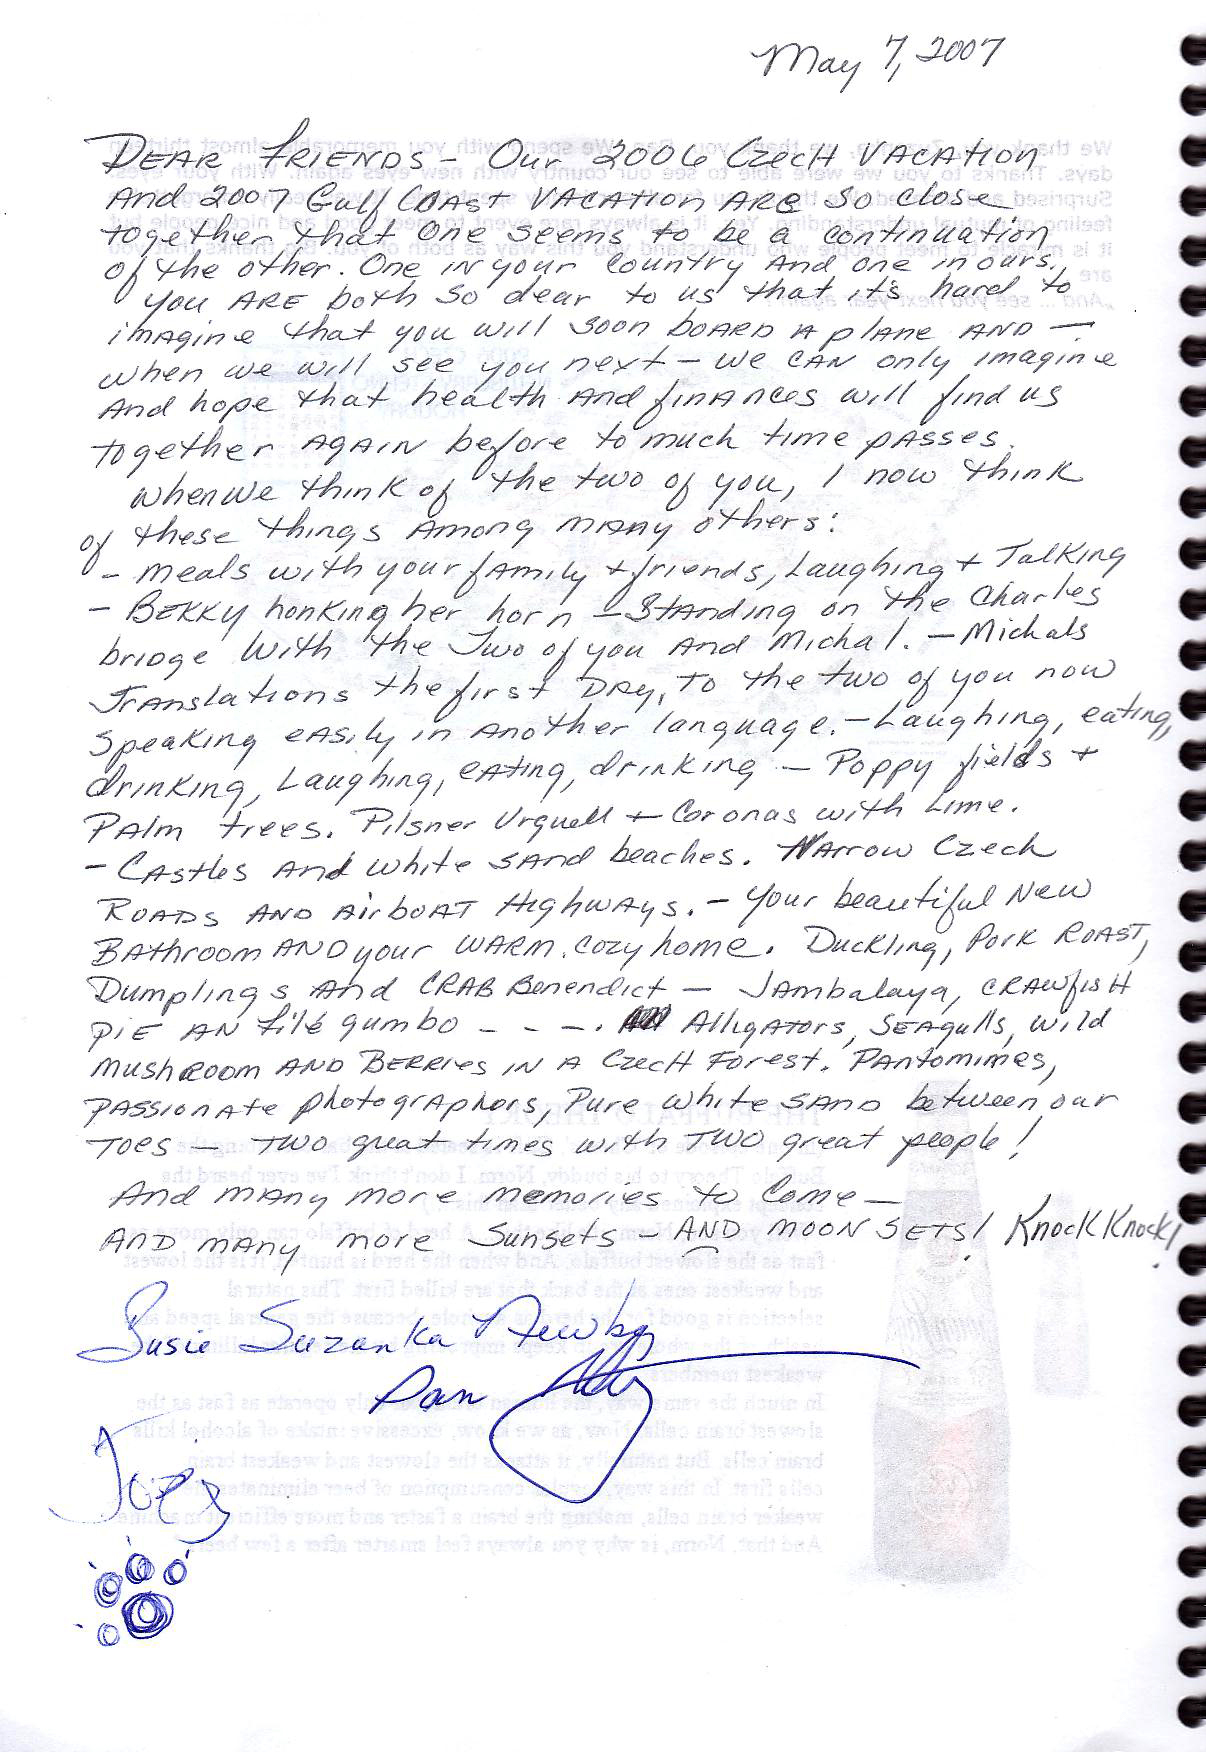 May 7, 2007
DEAR FRIENDS - Our 2006 Czech VACATION
And 2007 Gulf COAST VACATION ARE so close
together that one seems to be a continuation
of the other. One in your country and one in ours.
You ARE both so dear to us that it's hard to
imagine that you will soon board a plane AND -
when we will see you next - we can only imagine
And hope that health and finances will find us
together AGAIN before to much time passes.
When we think of the two of you, I now think
of these things among many others:
- meals with your family + friends, Laughing + Talking
- BEKKY honking her horn - Standing on the Charles
bridge With the Two of you And Michal. - Michals
Translations the first DAY, To the two of you now
speaking easily in another language. - Laughing, eating,
drinking, Laughing, eating, drinking - Poppy fields +
Palm trees. Pilsner Urquell + Coronas with Lime.
- Castles And white sand beaches. NArrow Czech
ROADS AND AirboAT Highways. - Your beautiful New
Bathroom AND your WARM, cozy home. Duckling, Pork ROAST,
Dumplings And CRAB Benendict - Jambalaya, CRAWfisH
PiE AN filé gumbo - - - . Alligators, SEAgulls, wild
mushroom AND BERRies IN A CzecH Forest. Pantomimes,
PASSIONATE photographers, Pure white SAND between our
TOES - TWO great times with TWO great people!
And many more memories to Come -
AND MANY more Sunsets - AND MOON SETS! Knock Knock!
Susie Suzanka Newby
Dan